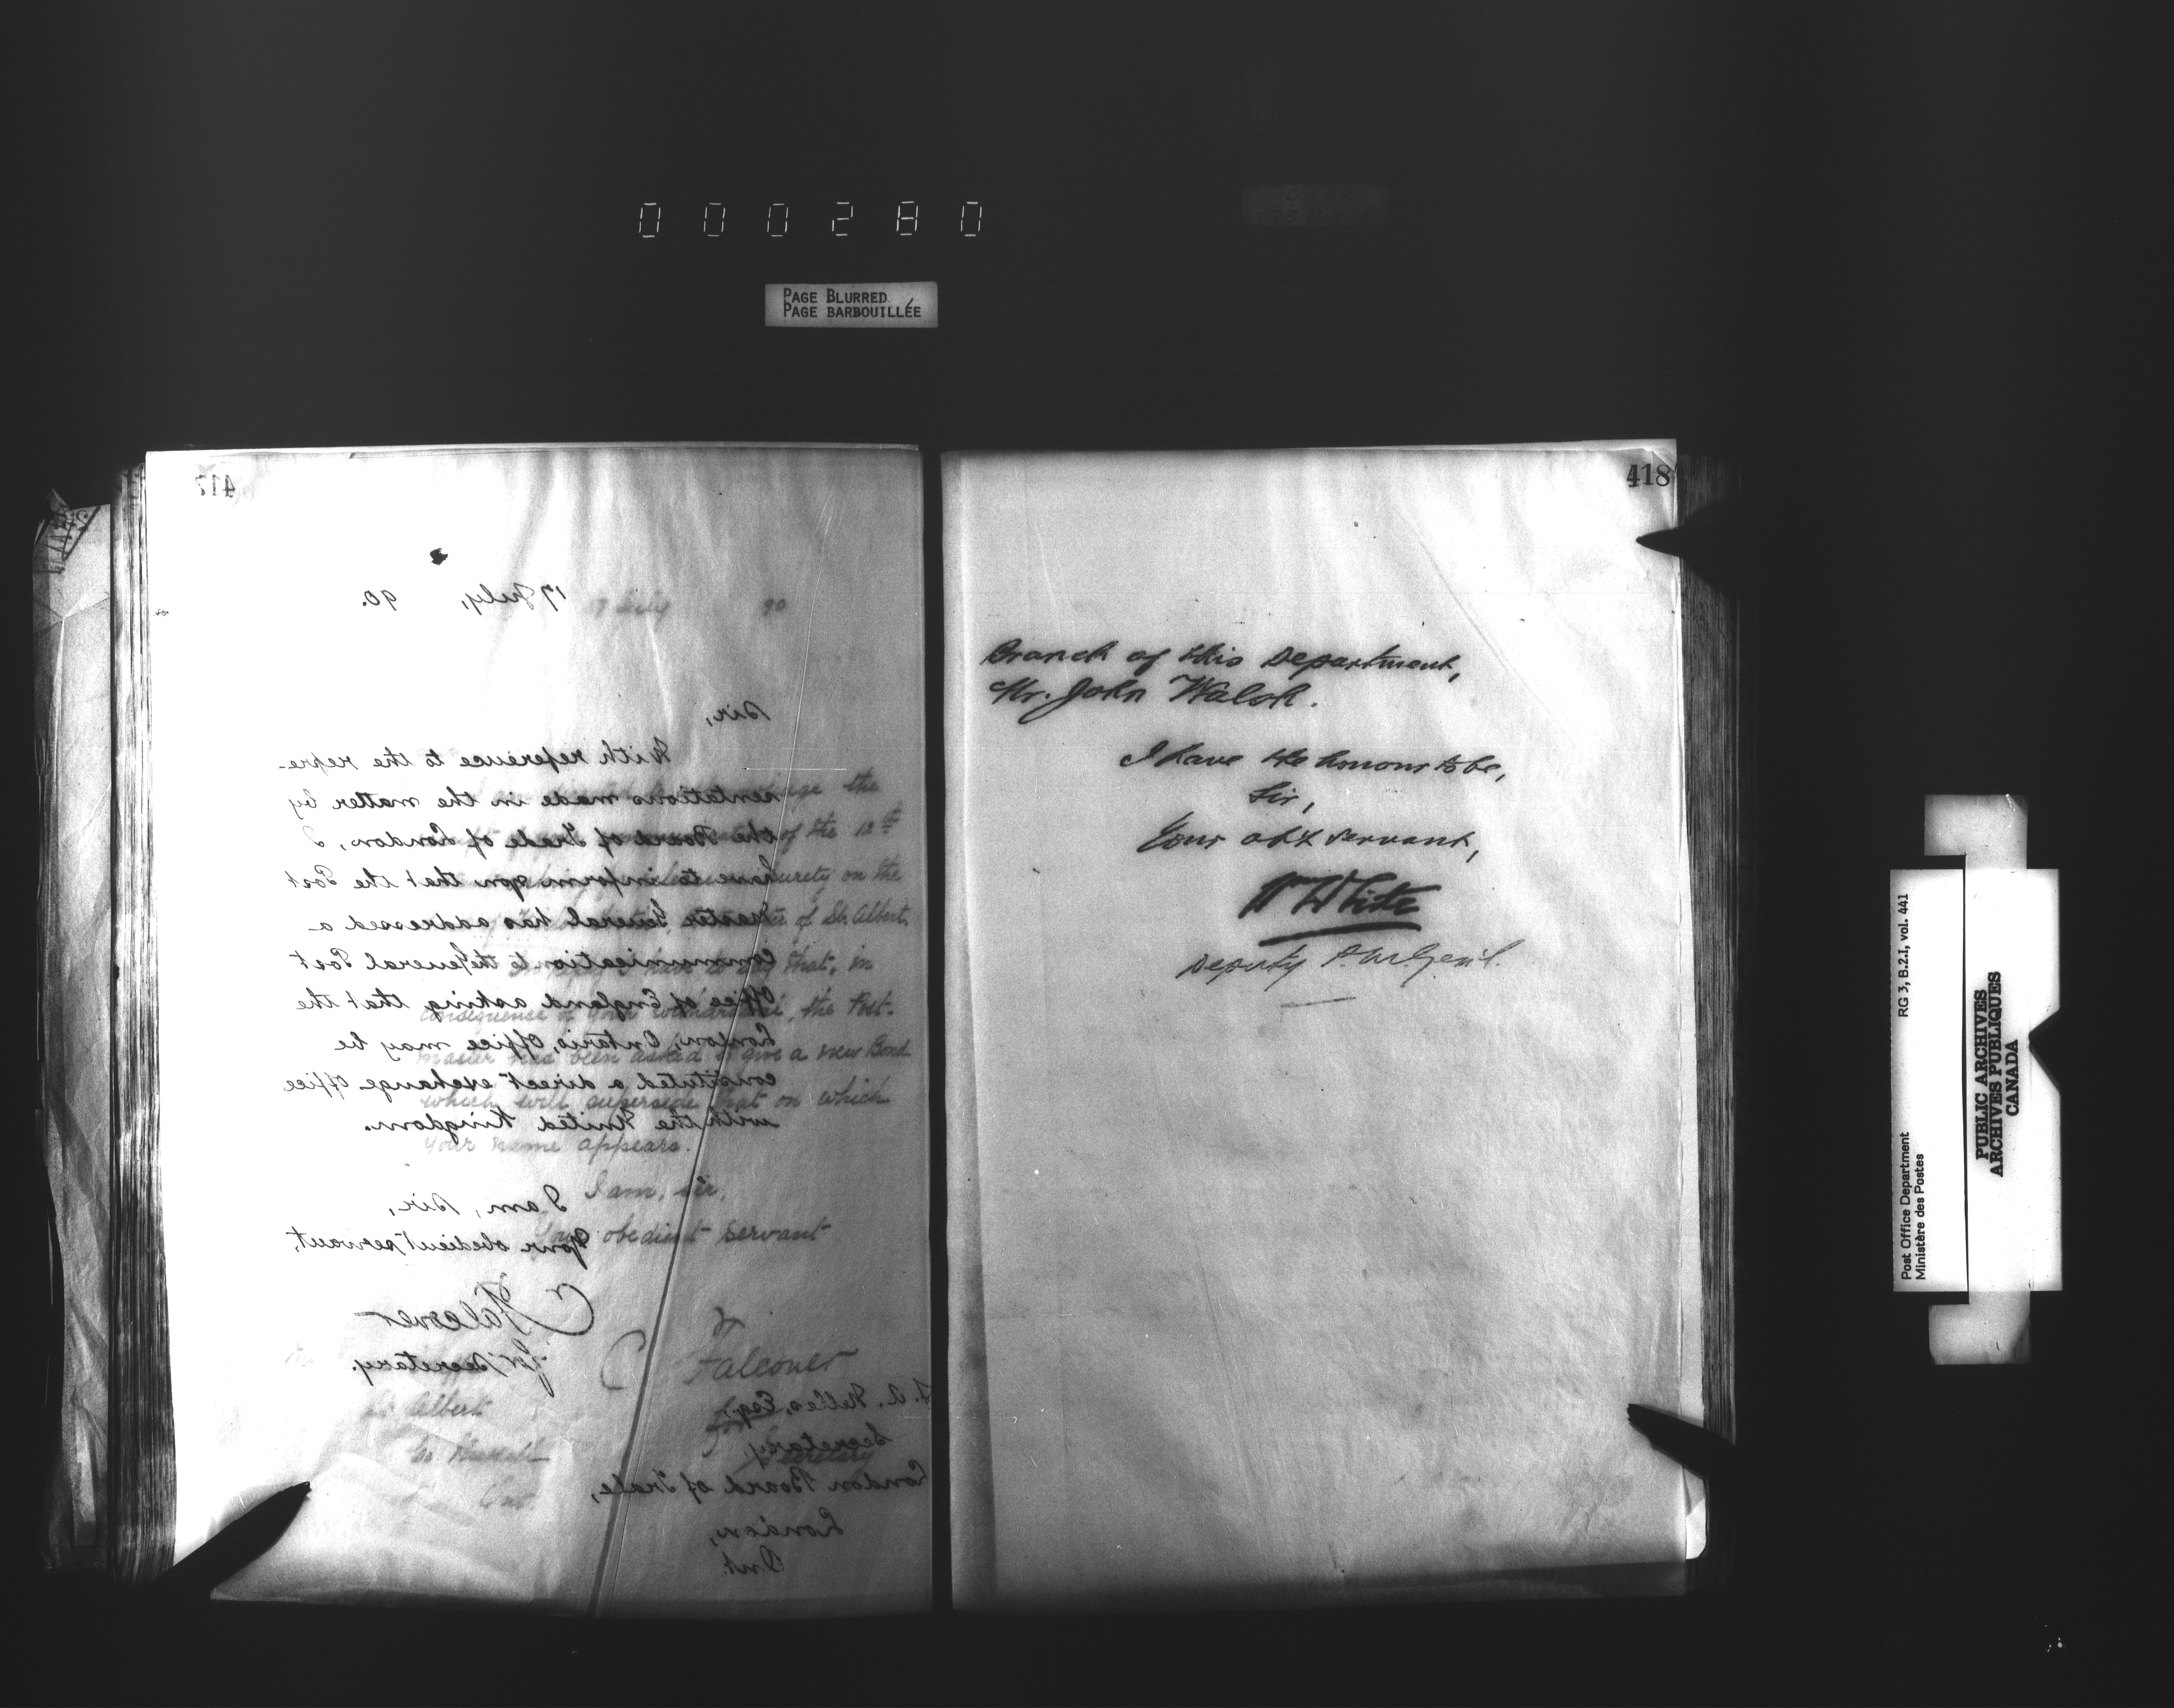 000280
PAGE BLURRED
PAGE BARBOUILLÉE
417
17 July, 90.
Sir,
With reference to the repre-
sentations made in the matter by
the Board of Trade of London, I
have to inform you that the Post
master General has addressed a
communication to the General Post
Office of England asking that the
London, Ontario, Office, may be
constituted a direct exchange office
with the United Kingdom.
I am, Sir,
Your obedient servant,
C Falconer
for Secretary.
Secretary,
London Board of Trade,
London,
Ont.
17 July 90
the
of the 12th
surety on the
of St. Albert
that, in
consequence of your withdrawal, the Post-
master has been asked to give a new Bond
which will supersede that on which
your name appears.
I am, Sir,
Your obedient servant
C Falconer
for Secretary
St. Albert
Co Russell
Ont.
418
Branch of this Department,
Mr. John Walsh.
I have the honour to be,
Sir,
Your ob't servant,
W White
Deputy P.M. Gen'l.
Post Office Department
Ministère des Postes
RG 3, B.2.I, vol. 441
PUBLIC ARCHIVES
ARCHIVES PUBLIQUES
CANADA